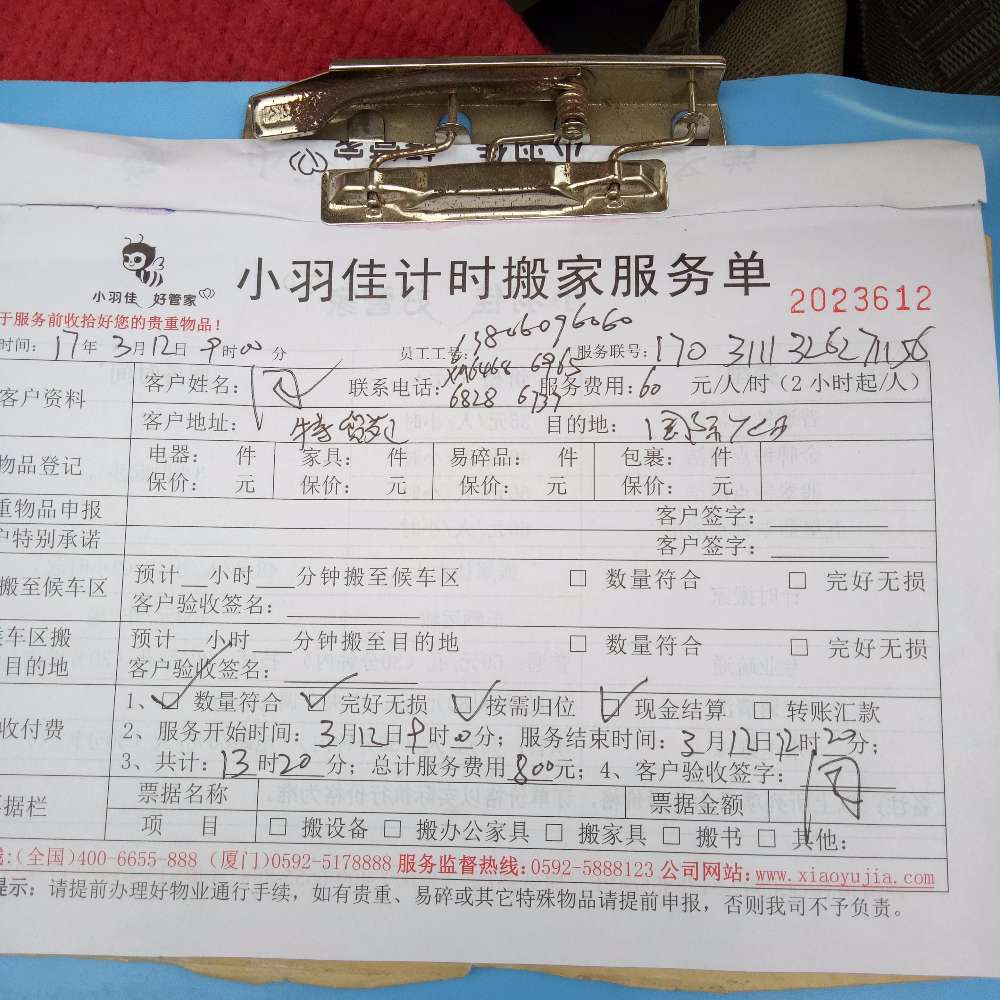 小羽佳 好管家
小羽佳 好管家
小羽佳计时搬家服务单
2023612
于服务前收拾好您的贵重物品!
13806096060
时间: 17年 3月12日 9时00分 员工工号: 服务联号: 170 3111326271156
6468 6965
客户资料 客户姓名: 联系电话: 服务费用: 60 元/人/时(2小时起/人)
6828 6737
客户地址: 目的地:
物品登记 电器: 件 家具: 件 易碎品: 件 包裹: 件
保价: 元 保价: 元 保价: 元 保价: 元
重物品申报 客户签字:
户特别承诺 客户签字:
搬至候车区 预计__小时___分钟搬至候车区 □ 数量符合 □ 完好无损
客户验收签名:
车区搬 预计__小时___分钟搬至目的地 □ 数量符合 □ 完好无损
目的地 客户验收签名:
1、☑ 数量符合 ☑ 完好无损 ☑ 按需归位 ☑ 现金结算 □ 转账汇款
收付费 2、服务开始时间: 3月12日9时00分; 服务结束时间: 3月12日12时20分;
3、共计: 13时20分; 总计服务费用800元; 4、客户验收签字:
据栏 票据名称 票据金额
项 目 □ 搬设备 □ 搬办公家具 □ 搬家具 □ 搬书 □ 其他:
线:(全国)400-6655-888 (厦门)0592-5178888 服务监督热线:0592-5888123 公司网站:www.xiaoyujia.com
提示: 请提前办理好物业通行手续, 如有贵重、易碎或其它特殊物品请提前申报, 否则我司不予负责。